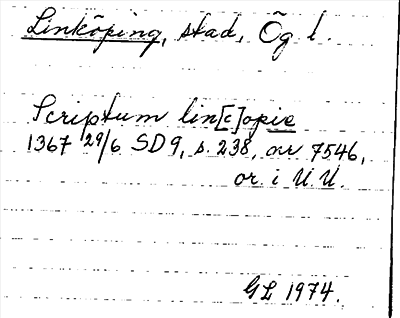 Linköping, stad, Ög l.
Scriptum lin[c]opie
1367 29/6 SD 9, s. 238, nr 7546,
or. i U.U.
GL 1974.